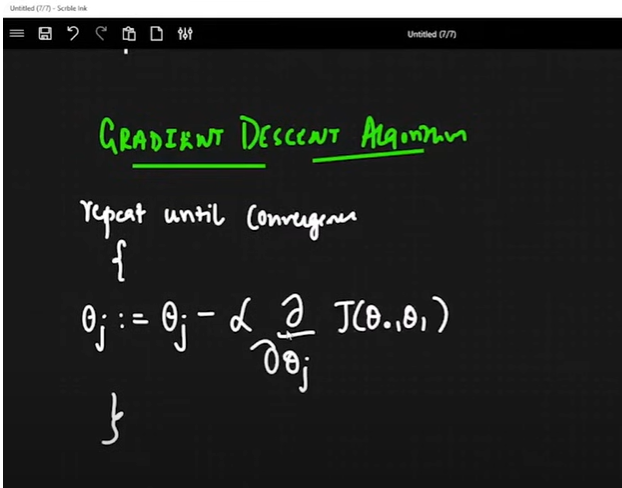 Untitled (7/7) - Scrble Ink
Untitled (7/7)
GRADIENT DESCENT Algorithm
repeat until Convergence
{
θj := θj - α ∂/∂θj J(θ0,θ1)
}